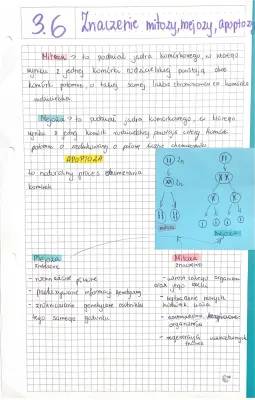 3.6 Znaczenie mitozy, mejozy, apoptozy
Mitoza → to podział jądra komórkowego, w którego
wyniku z jednej komórki rodzicielskiej powstają dwie
komórki potomne o takiej samej liczbie chromosomów co komórka
rodzicielska
Mejoza → to podział jądra komórkowego, w którego
wyniku z jednej komórki rodzicielskiej powstają cztery komórki
potomne o zredukowanej o połowę liczbie chromosomów
APOPTOZA
to naturalny proces obumierania
komórek
2n
2n
mitoza
mejoza
Mejoza
znaczenie
- rozmnażanie płciowe
- przekazywanie informacji genetycznej
- zróżnicowanie genetyczne osobników
tego samego gatunku
Mitoza
znaczenie
- wzrost całego organizmu
oraz jego części
- rozmnażanie
organizmów
- regeneracja uszkodzonych
tkanek